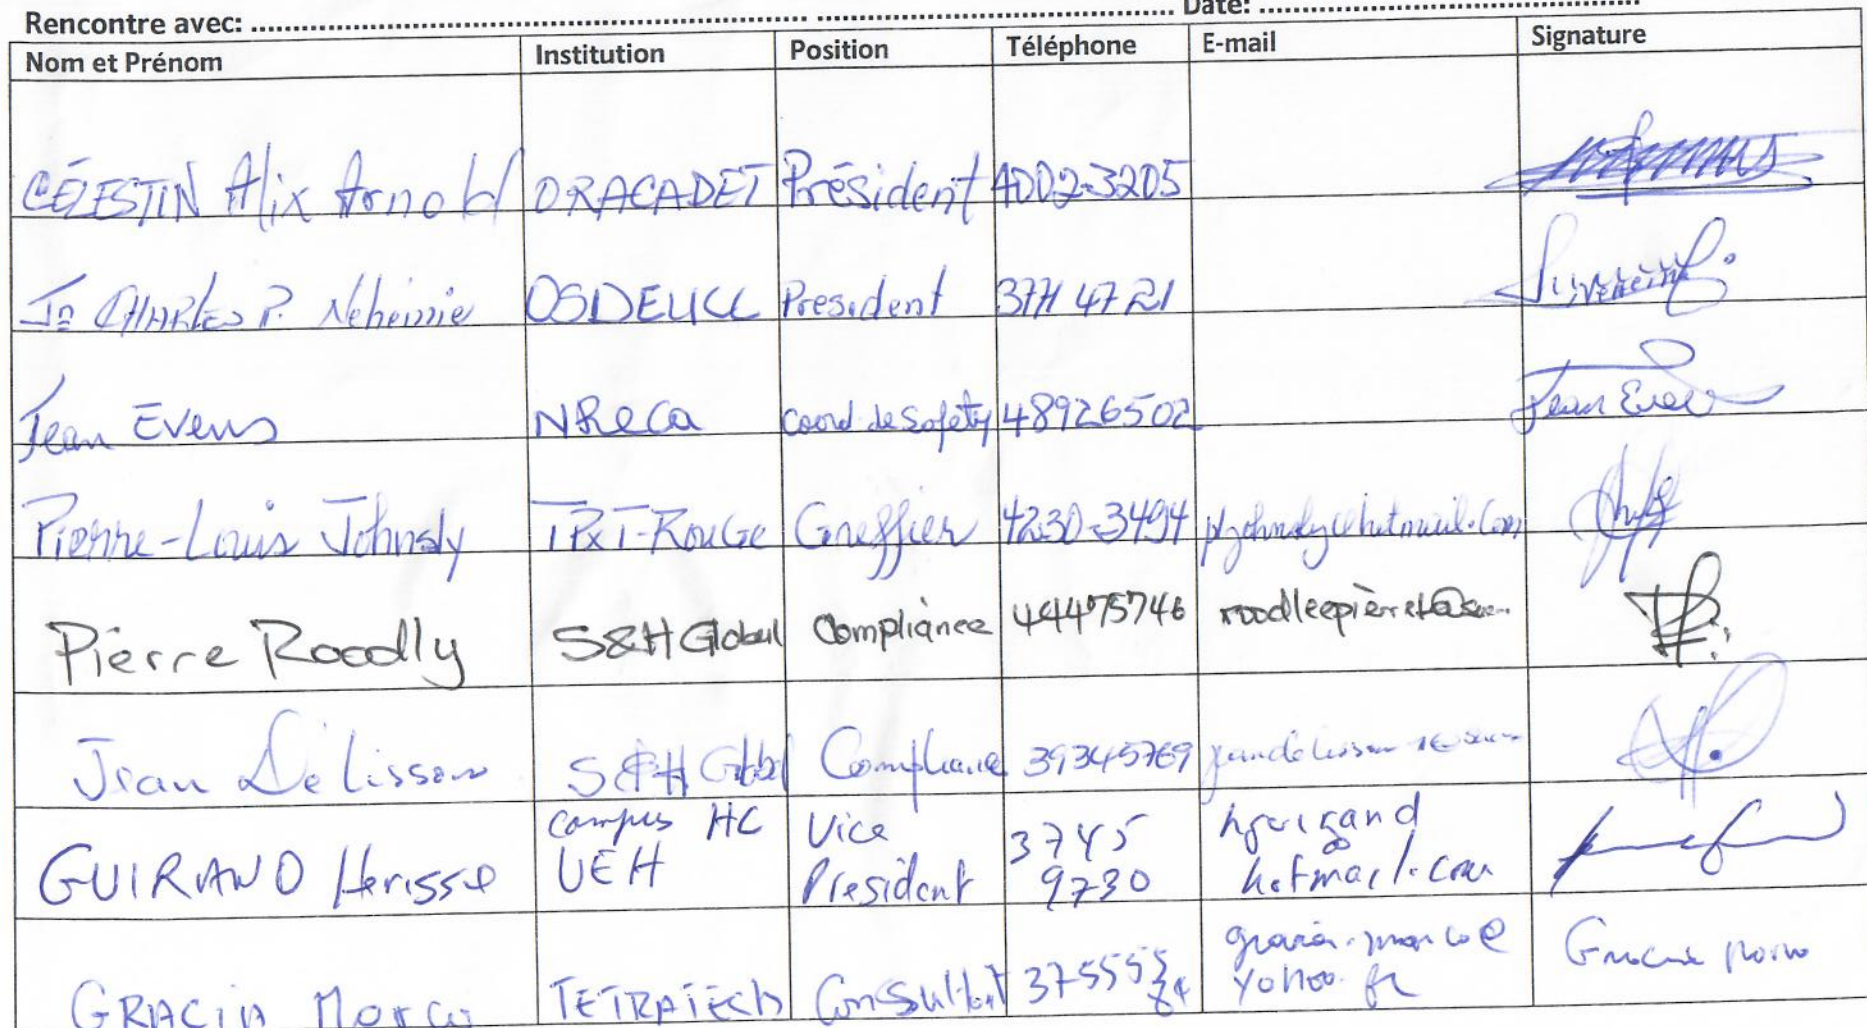 Rencontre avec: ........................ Date: ........................
Nom et Prénom Institution Position Téléphone E-mail Signature
CÉLESTIN Alix Arnold ORACADET Président 4002-3205
Jn CHARLES P. Nehémie OSDELICL President 3771 47 21
Jean Evens NReca Coord de Safety 48926502 Jean Evens
Pierre-Louis Johnsly TPxT-RouGe Greffier 4230-3494
Pierre Roodly S&H Global Compliance 44475746
Jean Délisson S&H Global Compliance 39345769
GUIRAND Herisse campus HC UEH Vice President 3745 9730 hotmail.com
GRACIA Marco TETRATECH Consultant yahoo.fr Gracia Marco